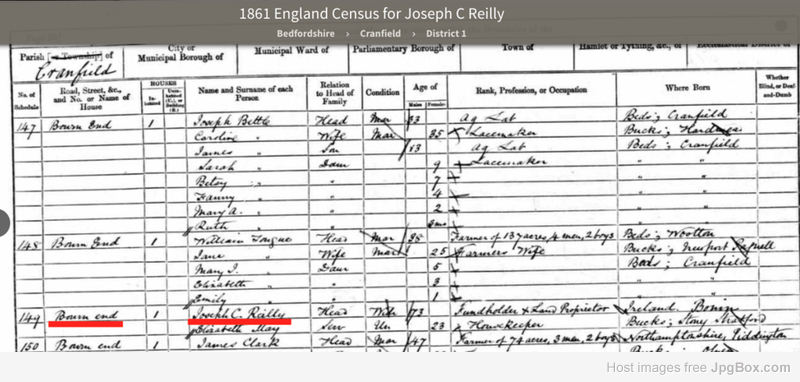 1861 England Census for Joseph C Reilly
Bedfordshire › Cranfield › District 1
Parish [or Township] of
City or
Municipal Borough of
Municipal Ward of
Parliamentary Borough of
Town of
Hamlet or Tything, &c., of
Cranfield
No. of Schedule
Road, Street, &c., and No. or Name of House
HOUSES
Name and Surname of each Person
Relation to Head of Family
Condition
Age of
Males Females
Rank, Profession, or Occupation
Where Born
Whether Blind, or Deaf-and-Dumb
147 Bourn End 1 Joseph Bettle Head Mar 33 Ag Lab Beds; Cranfield
Caroline " Wife Mar 35 Lacemaker Bucks;
James " Son 13 Ag Lab Beds; Cranfield
Sarah " Daur 9 Lacemaker " "
Betsy " 7 " "
Fanny " 4 " "
Mary A. " 2 " "
Ruth "
148 Bourn End 1 William Tongue Head Mar 35 Farmer of 137 acres, 4 men, 2 boys Beds; Wootton
Jane " Wife Mar 25 Farmers Wife Bucks; Newport Pagnell
Mary J. " Daur 5 Beds; Cranfield
Elizabeth " 3 " "
Emily " 1 " "
149 Bourn end 1 Joseph C. Reilly Head 73 Fundholder & Land Proprietor Ireland
Elizabeth May Serv Un 23 Housekeeper Bucks; Stony Stratford
150 Bourn end 1 James Clark Head Mar 47 Farmer of 74 acres, 3 men, 2 boys Northamptonshire, Piddington
Host images free JpgBox.com